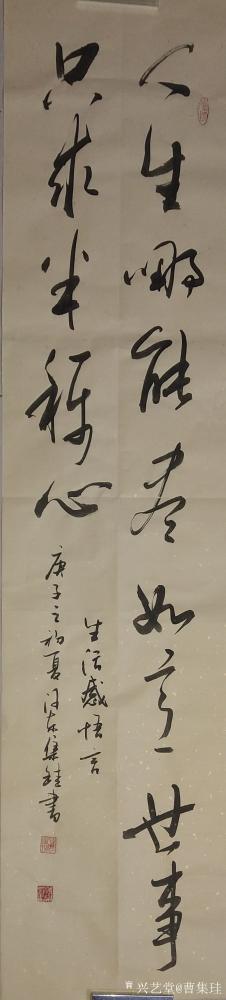 人生哪能尽如意世事
只求半称心
生活感悟言
庚子之初夏集珪书
兴艺堂@曹集珪